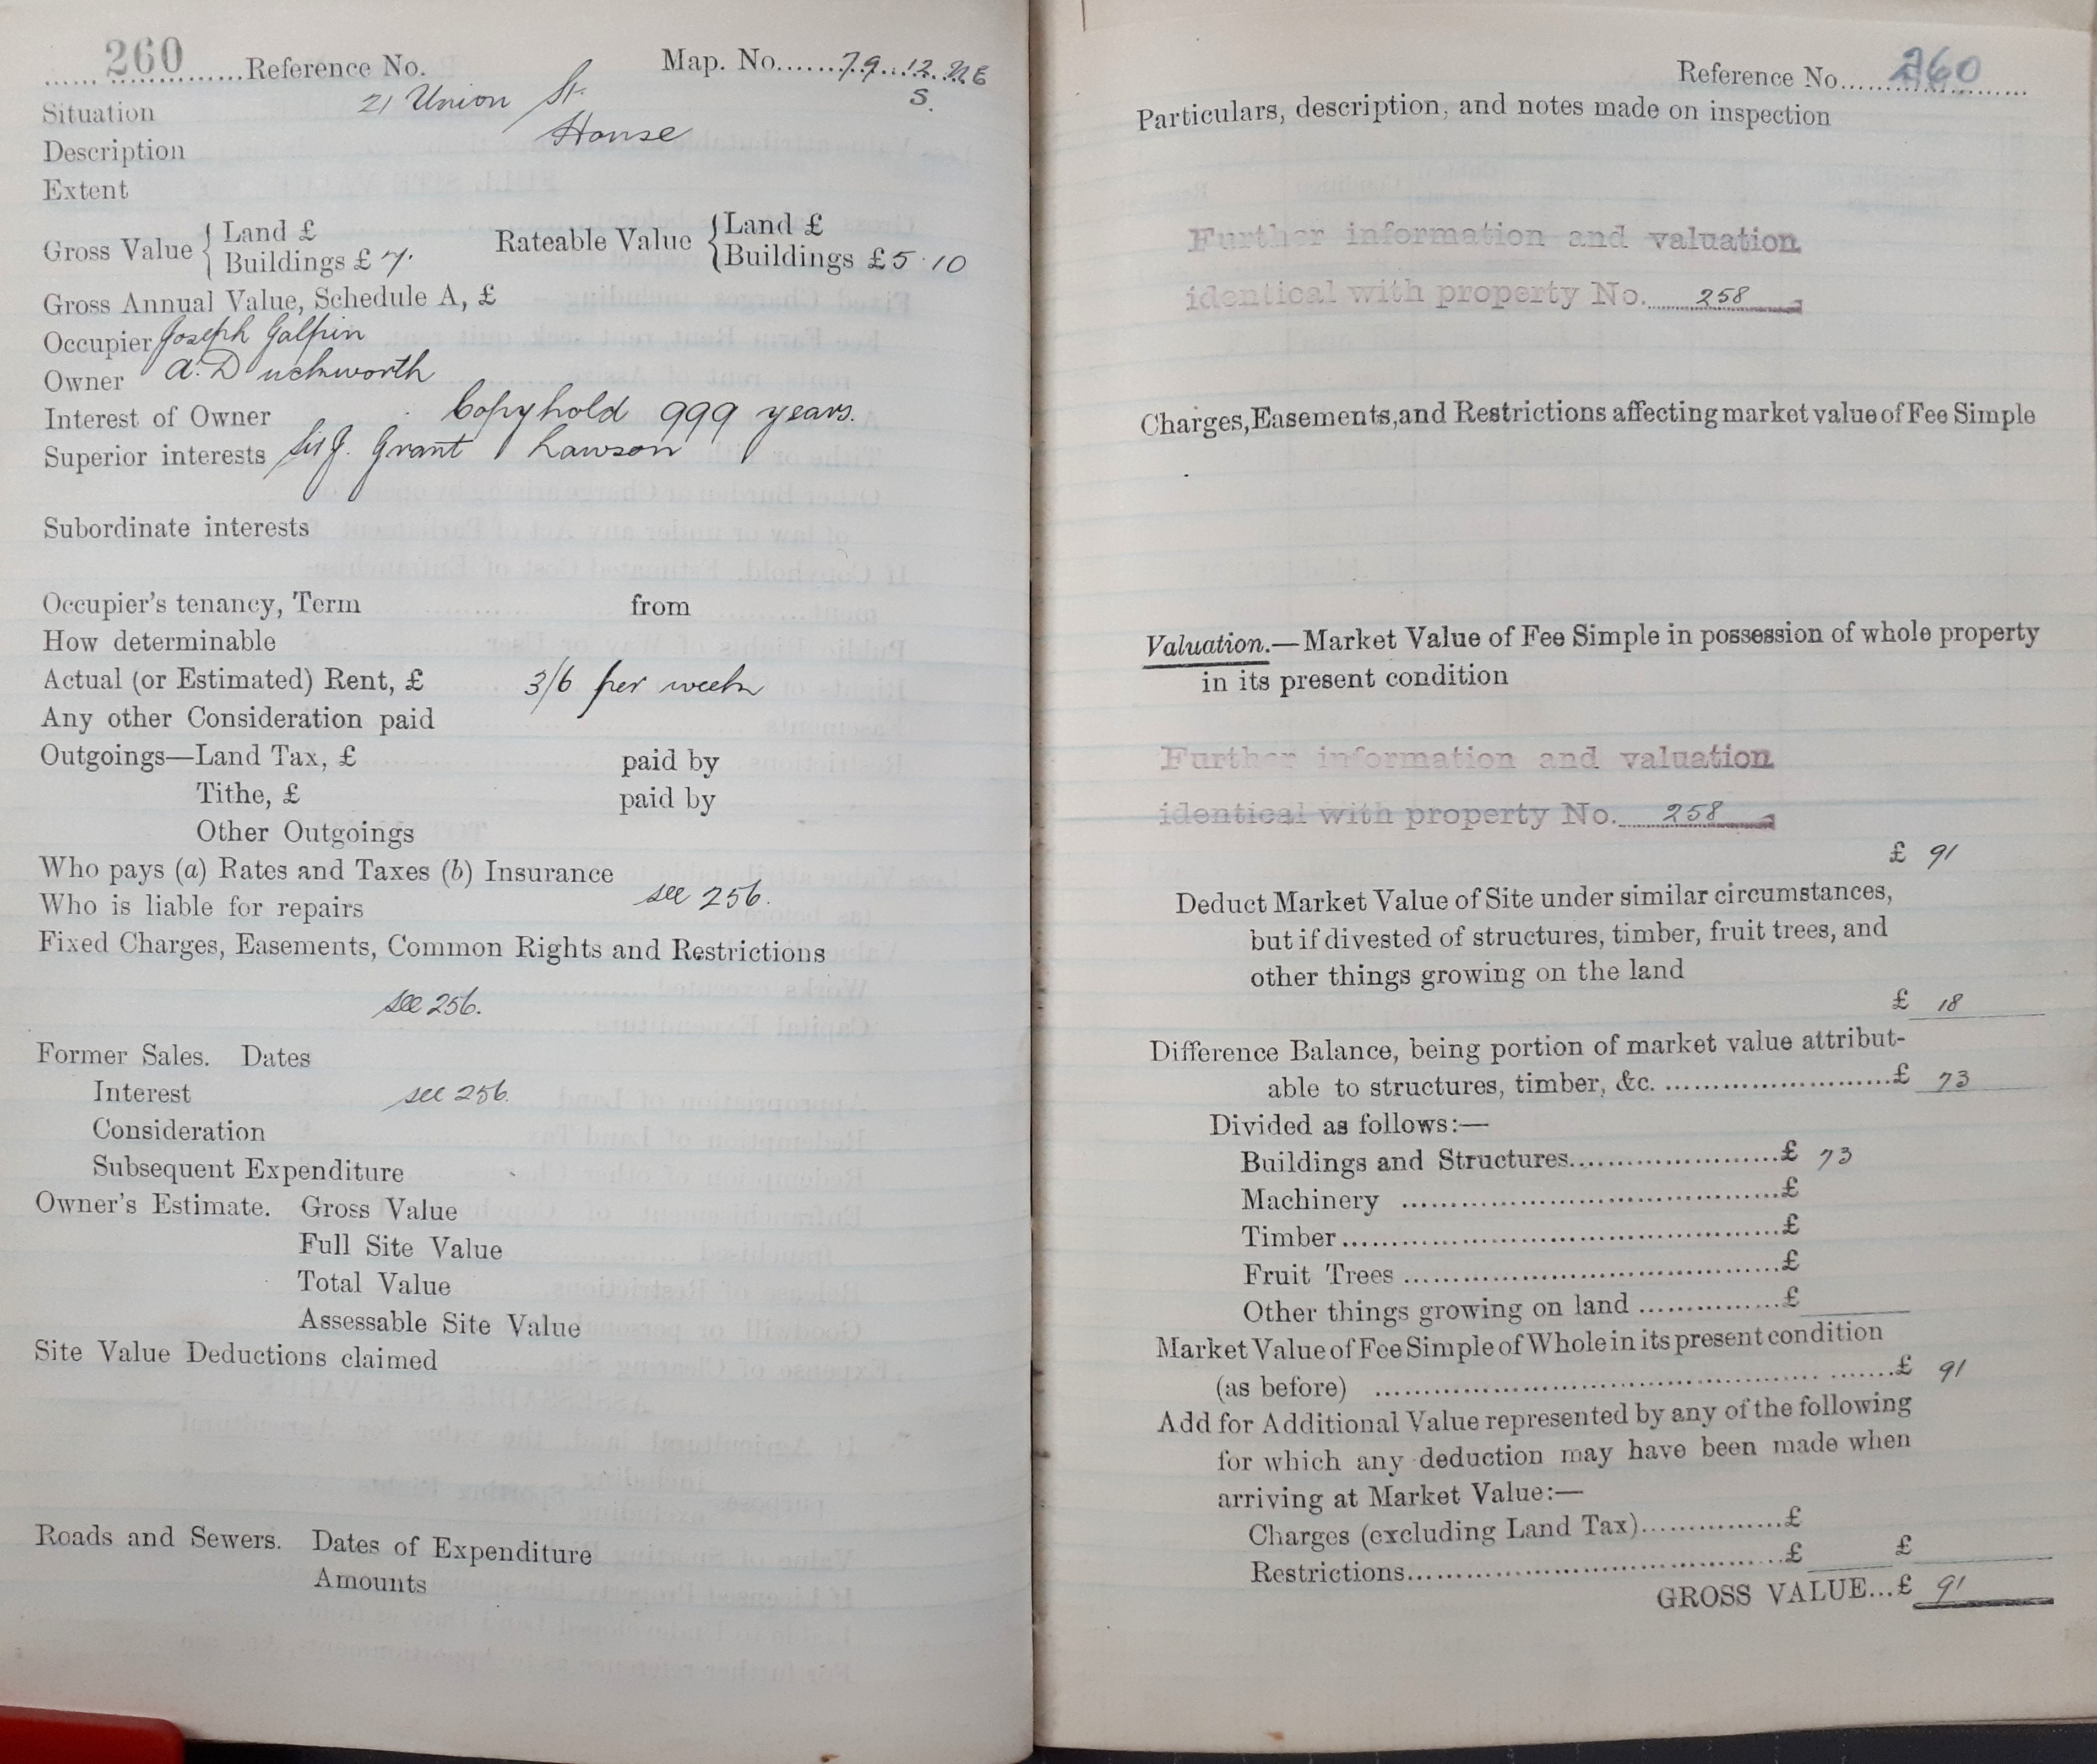 260 Reference No. Map. No. 79.12.NE
S.
Situation 21 Union St.
Description House
Extent
Gross Value { Land £
Buildings £ 7. Rateable Value { Land £
Buildings £5.10
Gross Annual Value, Schedule A, £
Occupier Joseph Galpin
Owner A. Duckworth
Interest of Owner Copyhold 999 years.
Superior interests Sir J. Grant Lawson
Subordinate interests
Occupier's tenancy, Term from
How determinable
Actual (or Estimated) Rent, £ 3/6 per week
Any other Consideration paid
Outgoings—Land Tax, £ paid by
Tithe, £ paid by
Other Outgoings
Who pays (a) Rates and Taxes (b) Insurance
see 256.
Who is liable for repairs
Fixed Charges, Easements, Common Rights and Restrictions
see 256.
Former Sales. Dates
Interest see 256.
Consideration
Subsequent Expenditure
Owner's Estimate. Gross Value
Full Site Value
Total Value
Assessable Site Value
Site Value Deductions claimed
Roads and Sewers. Dates of Expenditure
Amounts
Reference No. 260
Particulars, description, and notes made on inspection
Further information and valuation
identical with property No. 258
Charges, Easements, and Restrictions affecting market value of Fee Simple
Valuation.—Market Value of Fee Simple in possession of whole property
in its present condition
Further information and valuation
identical with property No. 258
£ 91
Deduct Market Value of Site under similar circumstances,
but if divested of structures, timber, fruit trees, and
other things growing on the land
£ 18
Difference Balance, being portion of market value attribut-
able to structures, timber, &c. £ 73
Divided as follows:—
Buildings and Structures £ 73
Machinery £
Timber £
Fruit Trees £
Other things growing on land £
Market Value of Fee Simple of Whole in its present condition
(as before) £ 91
Add for Additional Value represented by any of the following
for which any deduction may have been made when
arriving at Market Value:—
Charges (excluding Land Tax) £
Restrictions £ £
GROSS VALUE...£ 91